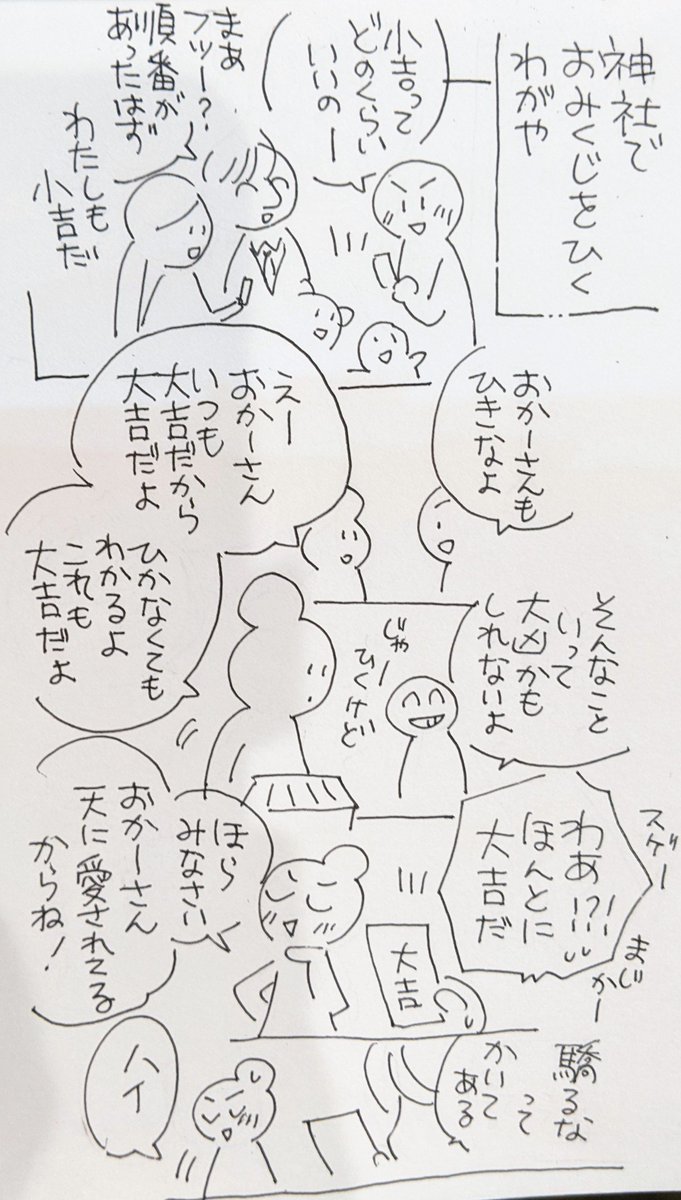 神社で
おみくじをひく
わがや
小吉って
どのくらい
いいのー
まあ
フツー?
順番が
あったはず
わたしも
小吉だ
おかーさんも
ひきなよ
えー
おかーさん
いつも
大吉だから
大吉だよ
ひかなくても
わかるよ
これも
大吉だよ
そんなこと
いって
大凶かも
しれないよ
じゃー
ひくけど
スゲー
わぁ!?!
ほんとに
大吉だ
まじ
かー
大吉
ほら
みなさい
おかーさん
天に愛されてる
からね!
驕るな
って
かいて
ある
ハイ